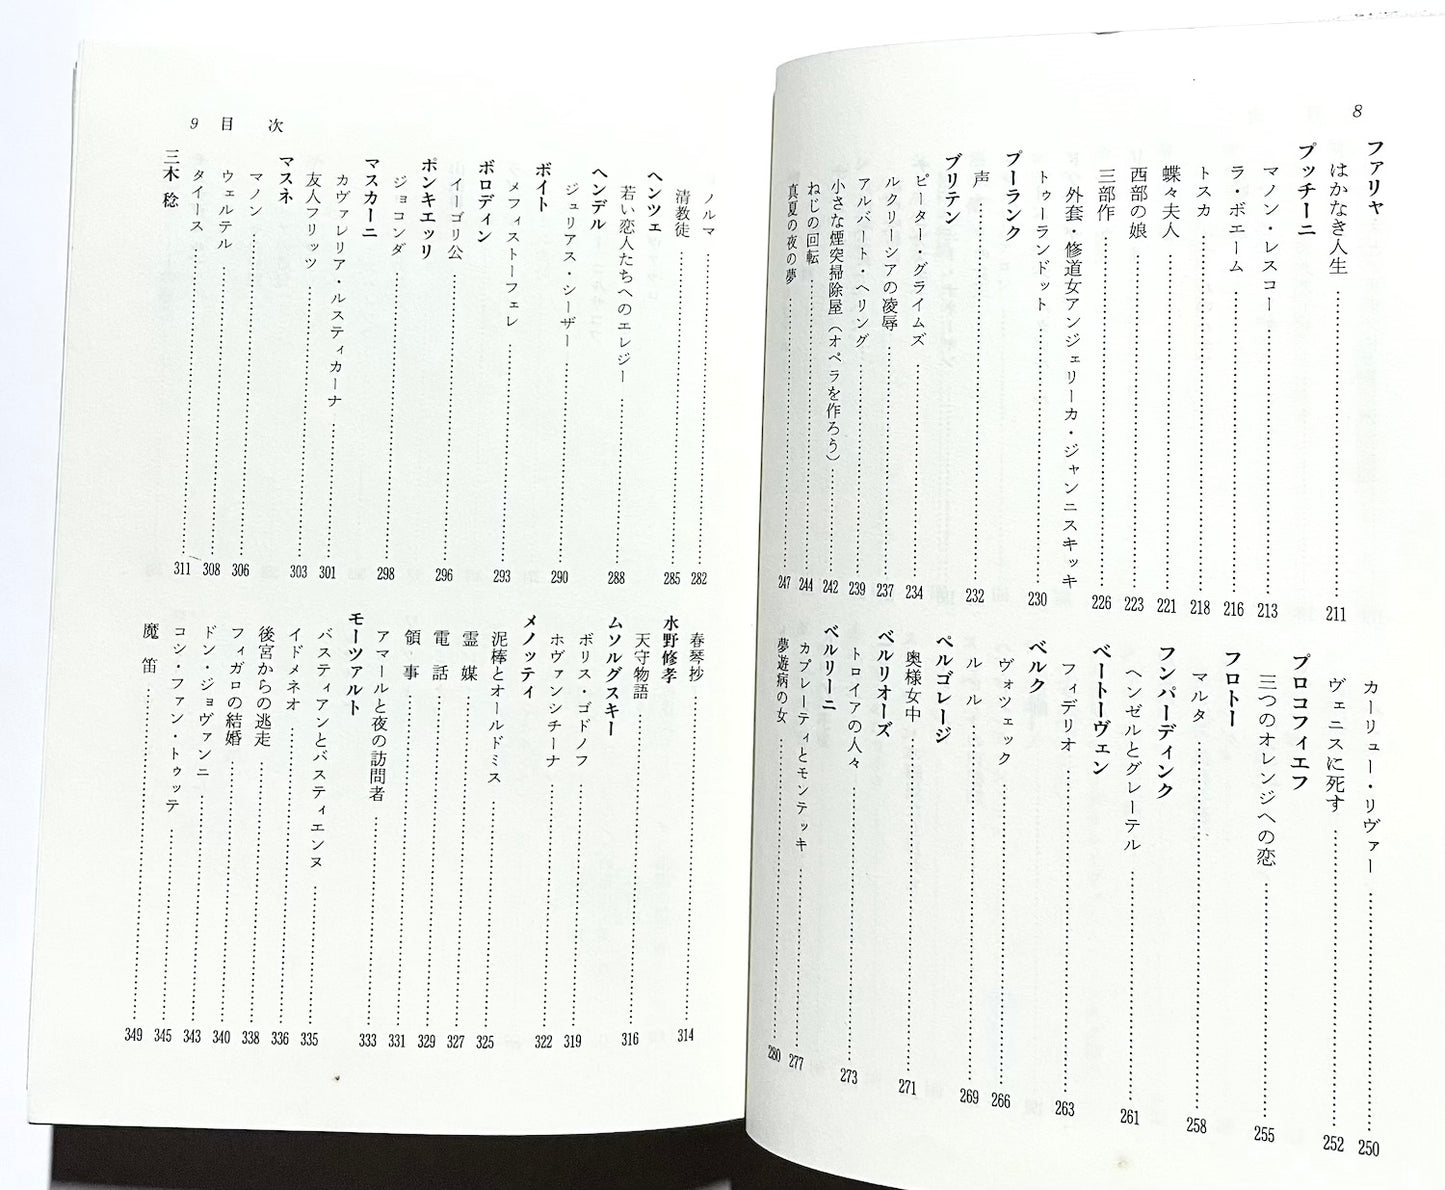 8
ファリャ
はかなき人生……211
プッチーニ
マノン・レスコー……213
ラ・ボエーム……216
トスカ……218
蝶々夫人……221
西部の娘……223
三部作……226
外套・修道女アンジェリーカ・ジャンニスキッキ
トゥーランドット……230
プーランク
声……232
ブリテン
ピーター・グライムズ……234
ルクリーシアの凌辱……237
アルバート・ヘリング……239
小さな煙突掃除屋(オペラを作ろう)……242
ねじの回転……244
真夏の夜の夢……247
カーリュー・リヴァー……250
ヴェニスに死す……252
プロコフィエフ
三つのオレンジへの恋……255
フロトー
マルタ……258
フンパーディンク
ヘンゼルとグレーテル……261
ベートーヴェン
フィデリオ……263
ベルク
ヴォツェック……266
ルル……269
ペルゴレージ
奥様女中……271
ベルリオーズ
トロイアの人々……273
ベルリーニ
カプレーティとモンテッキ……277
夢遊病の女……280
9 目 次
ノルマ……282
清教徒……285
ヘンツェ
若い恋人たちへのエレジー……288
ヘンデル
ジュリアス・シーザー……290
ボイト
メフィストーフェレ……293
ボロディン
イーゴリ公……296
ポンキエッリ
ジョコンダ……298
マスカーニ
カヴァレリア・ルスティカーナ……301
友人フリッツ……303
マスネ
マノン……306
ウェルテル……308
タイース……311
三木 稔
春琴抄……314
水野修孝
天守物語……316
ムソルグスキー
ボリス・ゴドノフ……319
ホヴァンシチーナ……322
メノッティ
泥棒とオールドミス……325
霊 媒……327
電 話……329
領 事……331
アマールと夜の訪問者……333
モーツァルト
バスティアンとバスティエンヌ……335
イドメネオ……336
後宮からの逃走……338
フィガロの結婚……340
ドン・ジョヴァンニ……343
コシ・ファン・トゥッテ……345
魔 笛……349